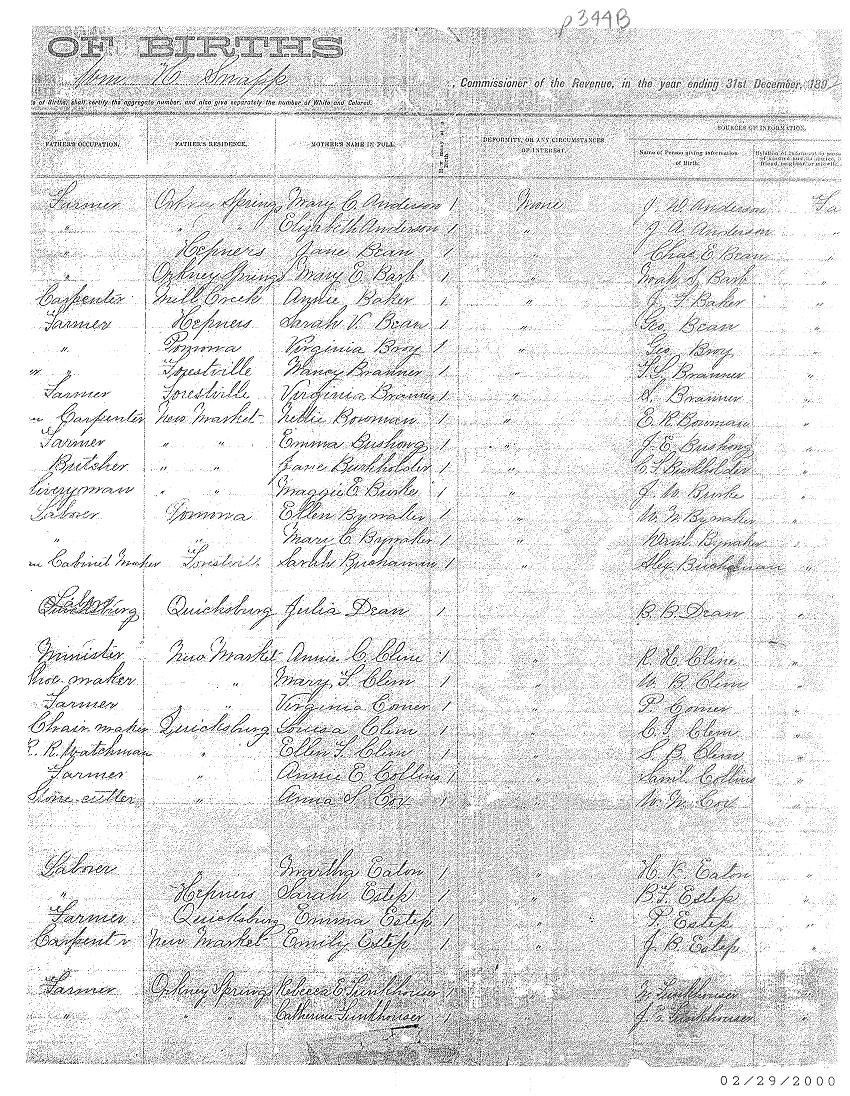 p344B
OF BIRTHS
Wm. H. Snapp, Commissioner of the Revenue, in the year ending 31st December, 189
s of Births, shall certify the aggregate number, and also give separately the number of White and Colored.
SOURCES OF INFORMATION.
FATHER'S OCCUPATION. FATHER'S RESIDENCE. MOTHER'S NAME IN FULL. DEFORMITY, OR ANY CIRCUMSTANCES OF INTEREST. Name of Person giving information of Birth.
Farmer Orkney Springs Mary C. Anderson 1 None J. W. Anderson Fa
" " " Elizabeth Anderson 1 " J A Anderson "
" Hepners Jane Bean 1 " Chas E. Bean "
" Orkney Springs Mary E. Barb 1 " Noah S. Barb "
Carpenter Mill Creek Annie Baker 1 " J. F. Baker "
Farmer Hepners Sarah V. Bean 1 " Geo. Bean "
" Pomona Virginia Broy 1 " Geo. Broy "
er " Forestville Nancy Branner 1 " Branner "
Farmer Forestville Virginia Branner 1 " Branner "
Carpenter New Market Nellie Bowman 1 " E. R. Bowman "
Farmer " " Emma Bushong 1 " J. E. Bushong "
Butcher " " Jane Burkholder 1 " Burkholder "
Liveryman " " Maggie E. Burke 1 " J. W. Burke "
Laborer Pomona Ellen Bymaker 1 " W. N Bymaker "
" " Mary C. Bymaker 1 " Bymaker "
Cabinet Maker Forestville Sarah Buchanan 1 " Alex. Buchanan "
Labor Quicksburg Julia Dean 1 " B. B. Dean "
Minister New Market Annie C. Cline 1 " R. H. Cline "
Shoe maker " Mary F. Clem 1 " W. B. Clem "
Farmer " Virginia Comer 1 " P. Comer "
Chair maker Quicksburg Louisa Clem 1 " Clem "
R. R. Watchman " Ellen F. Clem 1 " S. B. Clem "
Farmer " Annie E Collins 1 " Saml. Collins "
Stone-cutter " Anna S. Cox 1 " W. M. Cox "
Laborer Martha Eaton 1 " H. K. Eaton "
" Hepners Sarah Estep 1 " B. F. Estep "
Farmer Quicksburg Emma Estep 1 " P. Estep "
Carpenter New Market Emily Estep 1 " J. B. Estep "
Farmer Orkney Springs Rebecca E. Funkhouser 1 " Funkhouser "
" " " Catherine Funkhouser 1 " Funkhouser "
02/29/2000